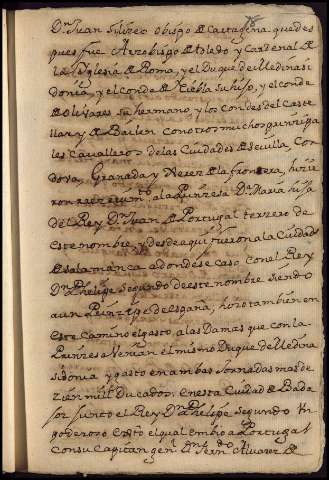 Dn Juan Siliceo obispo de Cartagena que des
pues fue Arzobispo de toledo y Cardenal de
la Yglesia de Roma, y el Duque de Medina si
donia, y el conde de Niebla su hijo, y el conde
de Olivares su hermano, y los condes del Caste
llar, y de Bailen con otros muchos principa
les Cavalleros de las Ciudades de Sevilla, Cor
dova, Granada y Xerez de la frontera, hizie
ron recevimto. a la Prinzesa Dª Maria hija
del Rey Dn Juan de Portugal terzero de
este nombre, y desde aqui fueron a la Ciudad
de Salamanca adonde se caso con el Rey
Dn Phelipe Segundo de este nombre siendo
aun Prinzipe de españa, hizo tambien en
este Camino el gasto, a las Damas que con la
Prinzesa Venian el mismo Duque de Medina
sidonia y gasto en ambas Jornadas mas de
Zien mill Ducados. en esta Ciudad de Bada
joz junto el Rey Dn Phelipe Segundo Un
poderoso exerto. el qual embio a Portugal
con su Capitan genl. Dn. fern do. Alvarez de